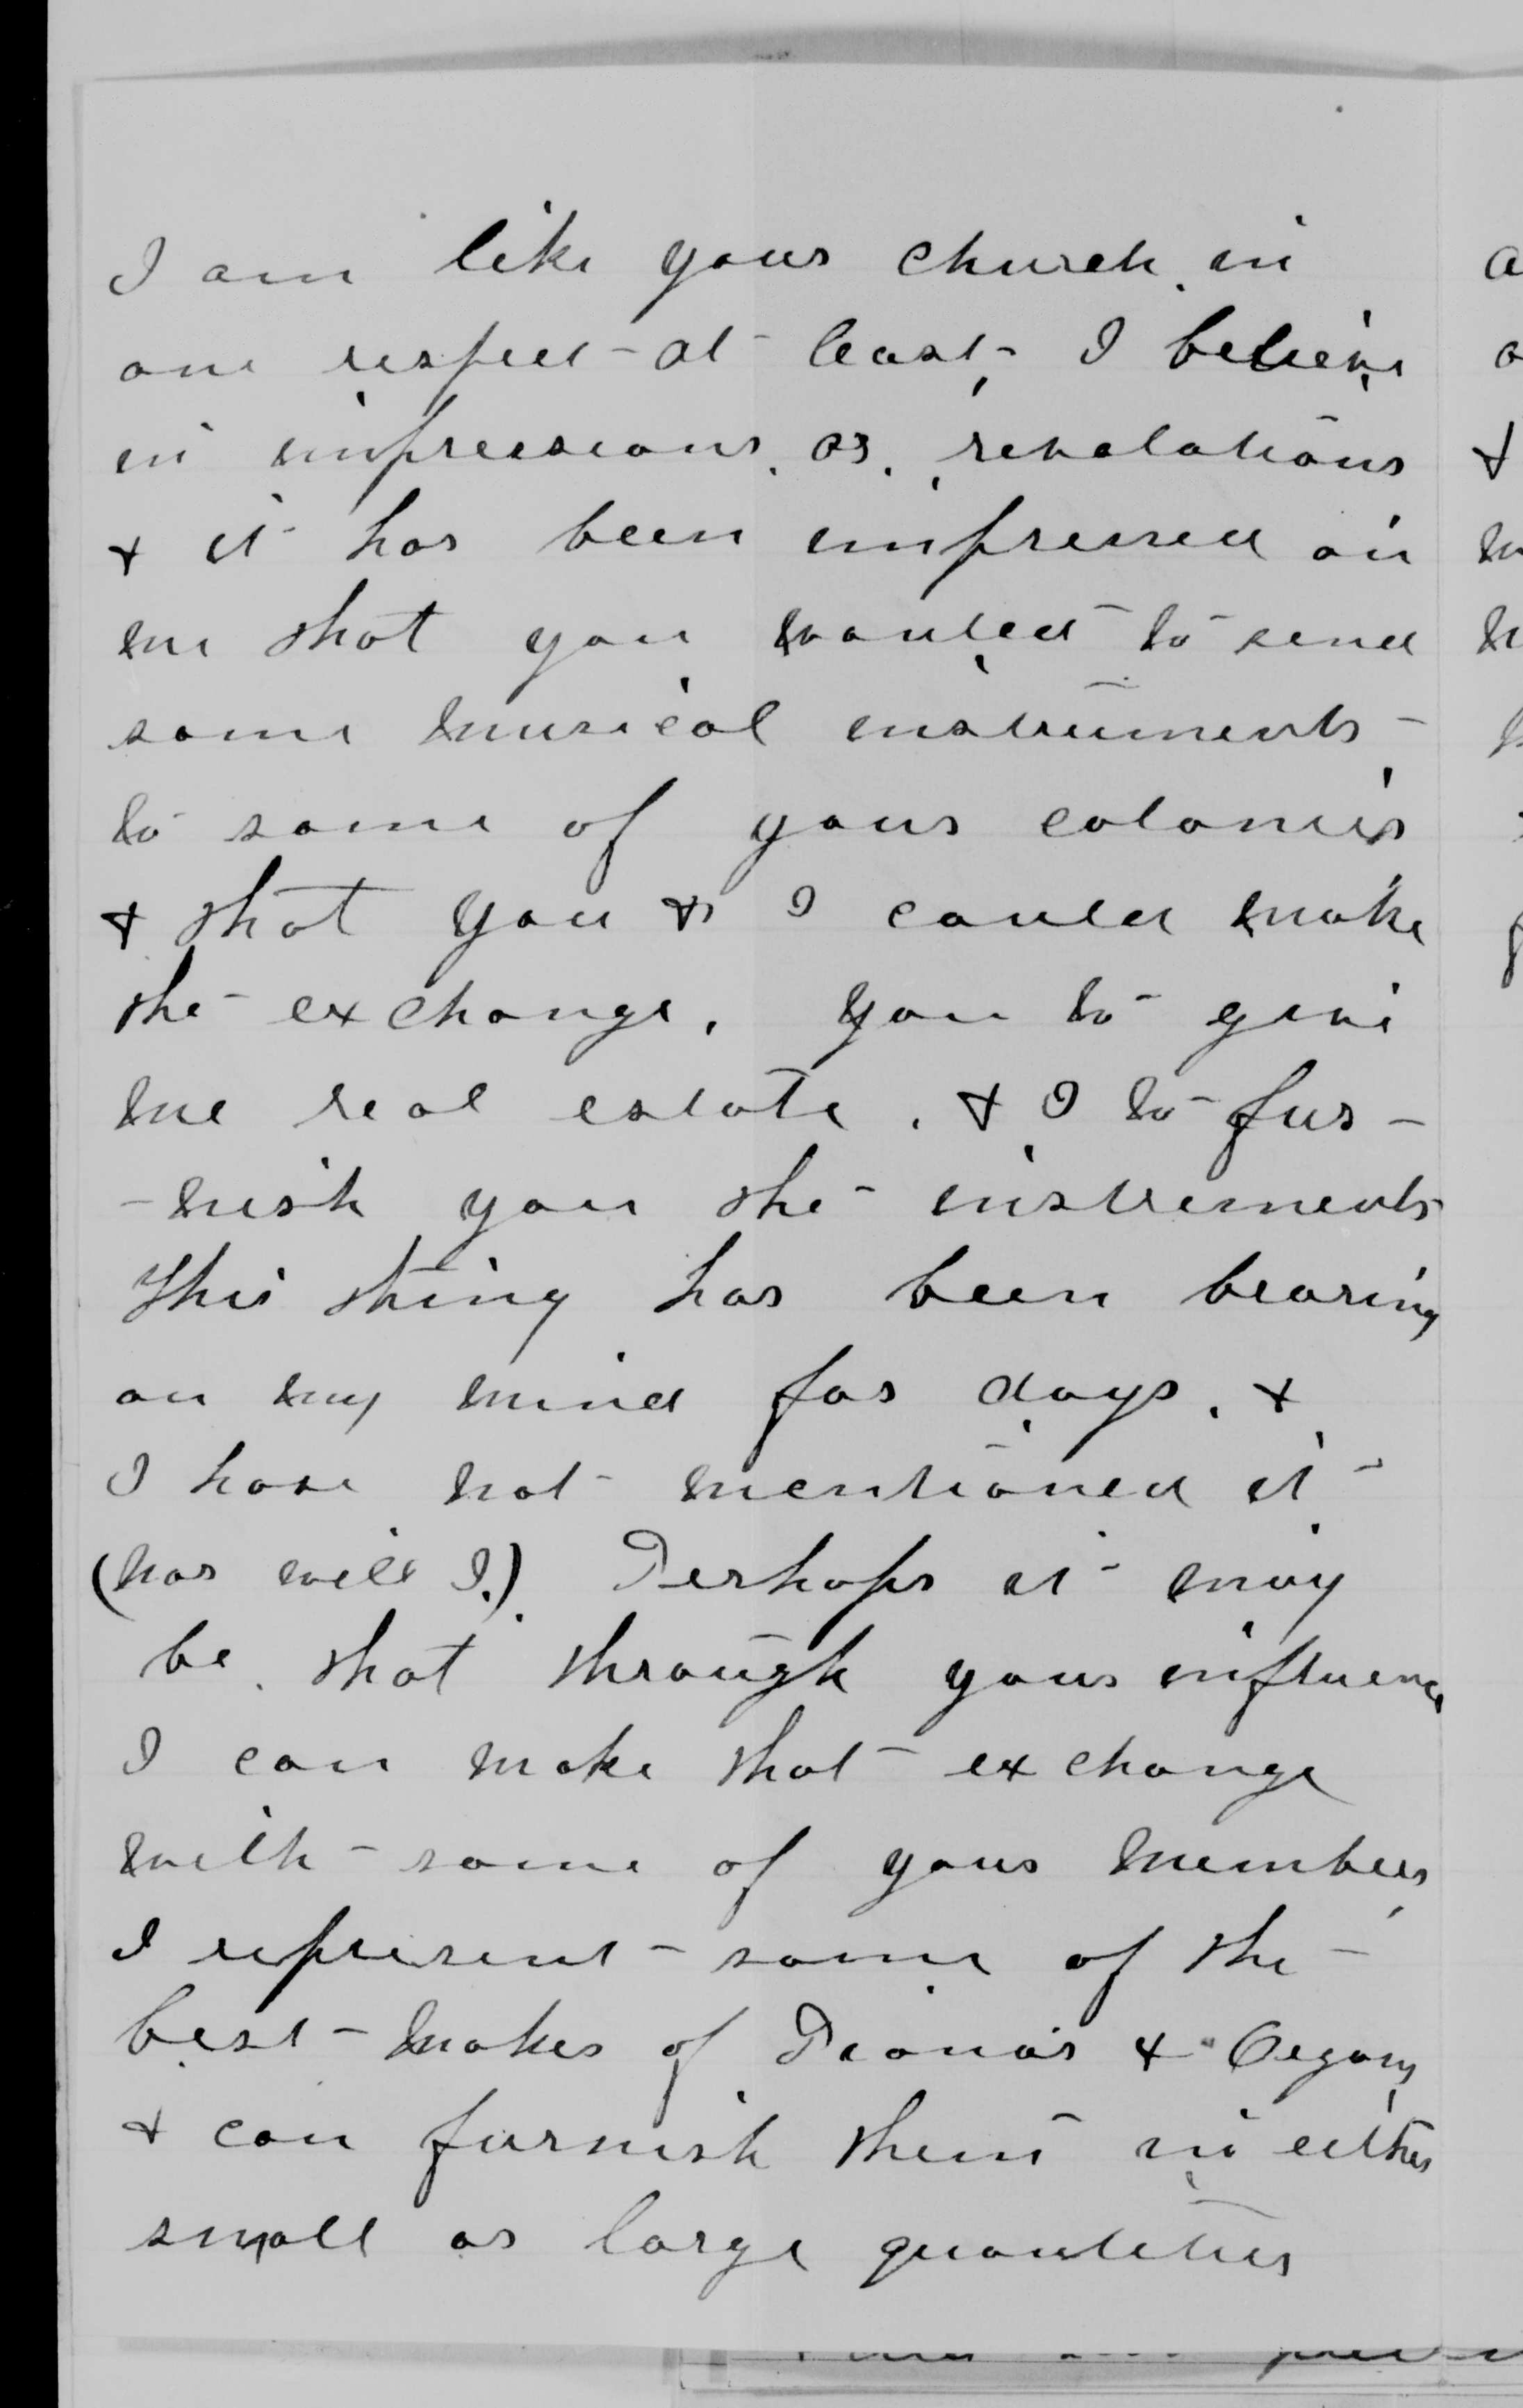 I am like your church in
one respect at least, I believe
in impressions, or, revelations
& it has been impressed on
me that you wanted to send
some musical instruments
to some of your colonies
& that you & I could make
the exchange, you to give
me real estate, & I to fur-
-nish you the instruments
This thing has been bearing
on my mind for days, &
I have not mentioned it
(nor will I.) Perhaps it may
be, that through your influence
I can make that exchange
with some of your members,
I represent some of the
best makes of Pianos & Organs,
& can furnish them in either
small or large quantities